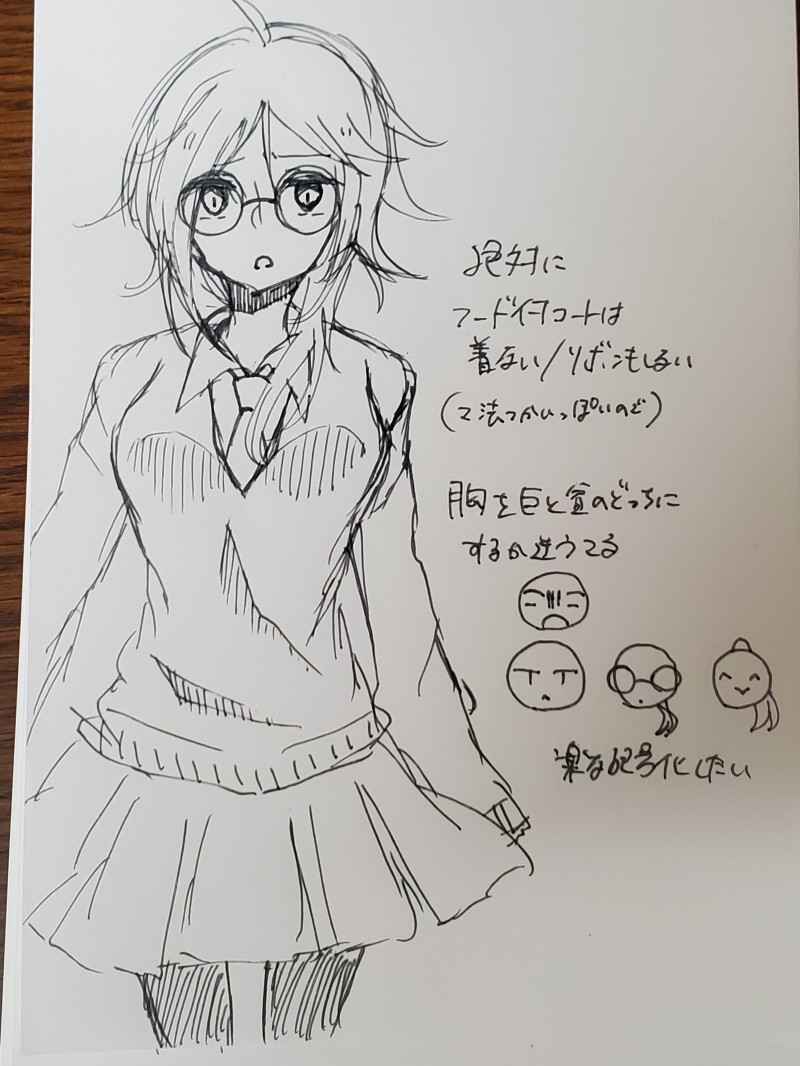 絶対に
フード付コートは
着ない/リボンもしない
(マ法つかいっぽいので)
胸を巨と貧のどっちに
するか迷うてる
楽な記号化したい